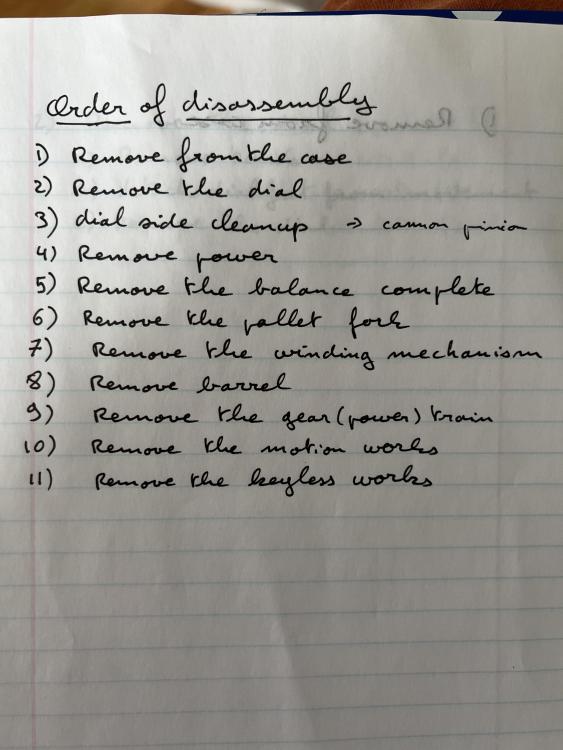 Order of disassembly
1) Remove from the case
2) Remove the dial
3) dial side cleanup → cannon pinion
4) Remove power
5) Remove the balance complete
6) Remove the pallet fork
7) Remove the winding mechanism
8) Remove barrel
9) Remove the gear (power) train
10) Remove the motion works
11) Remove the keyless works